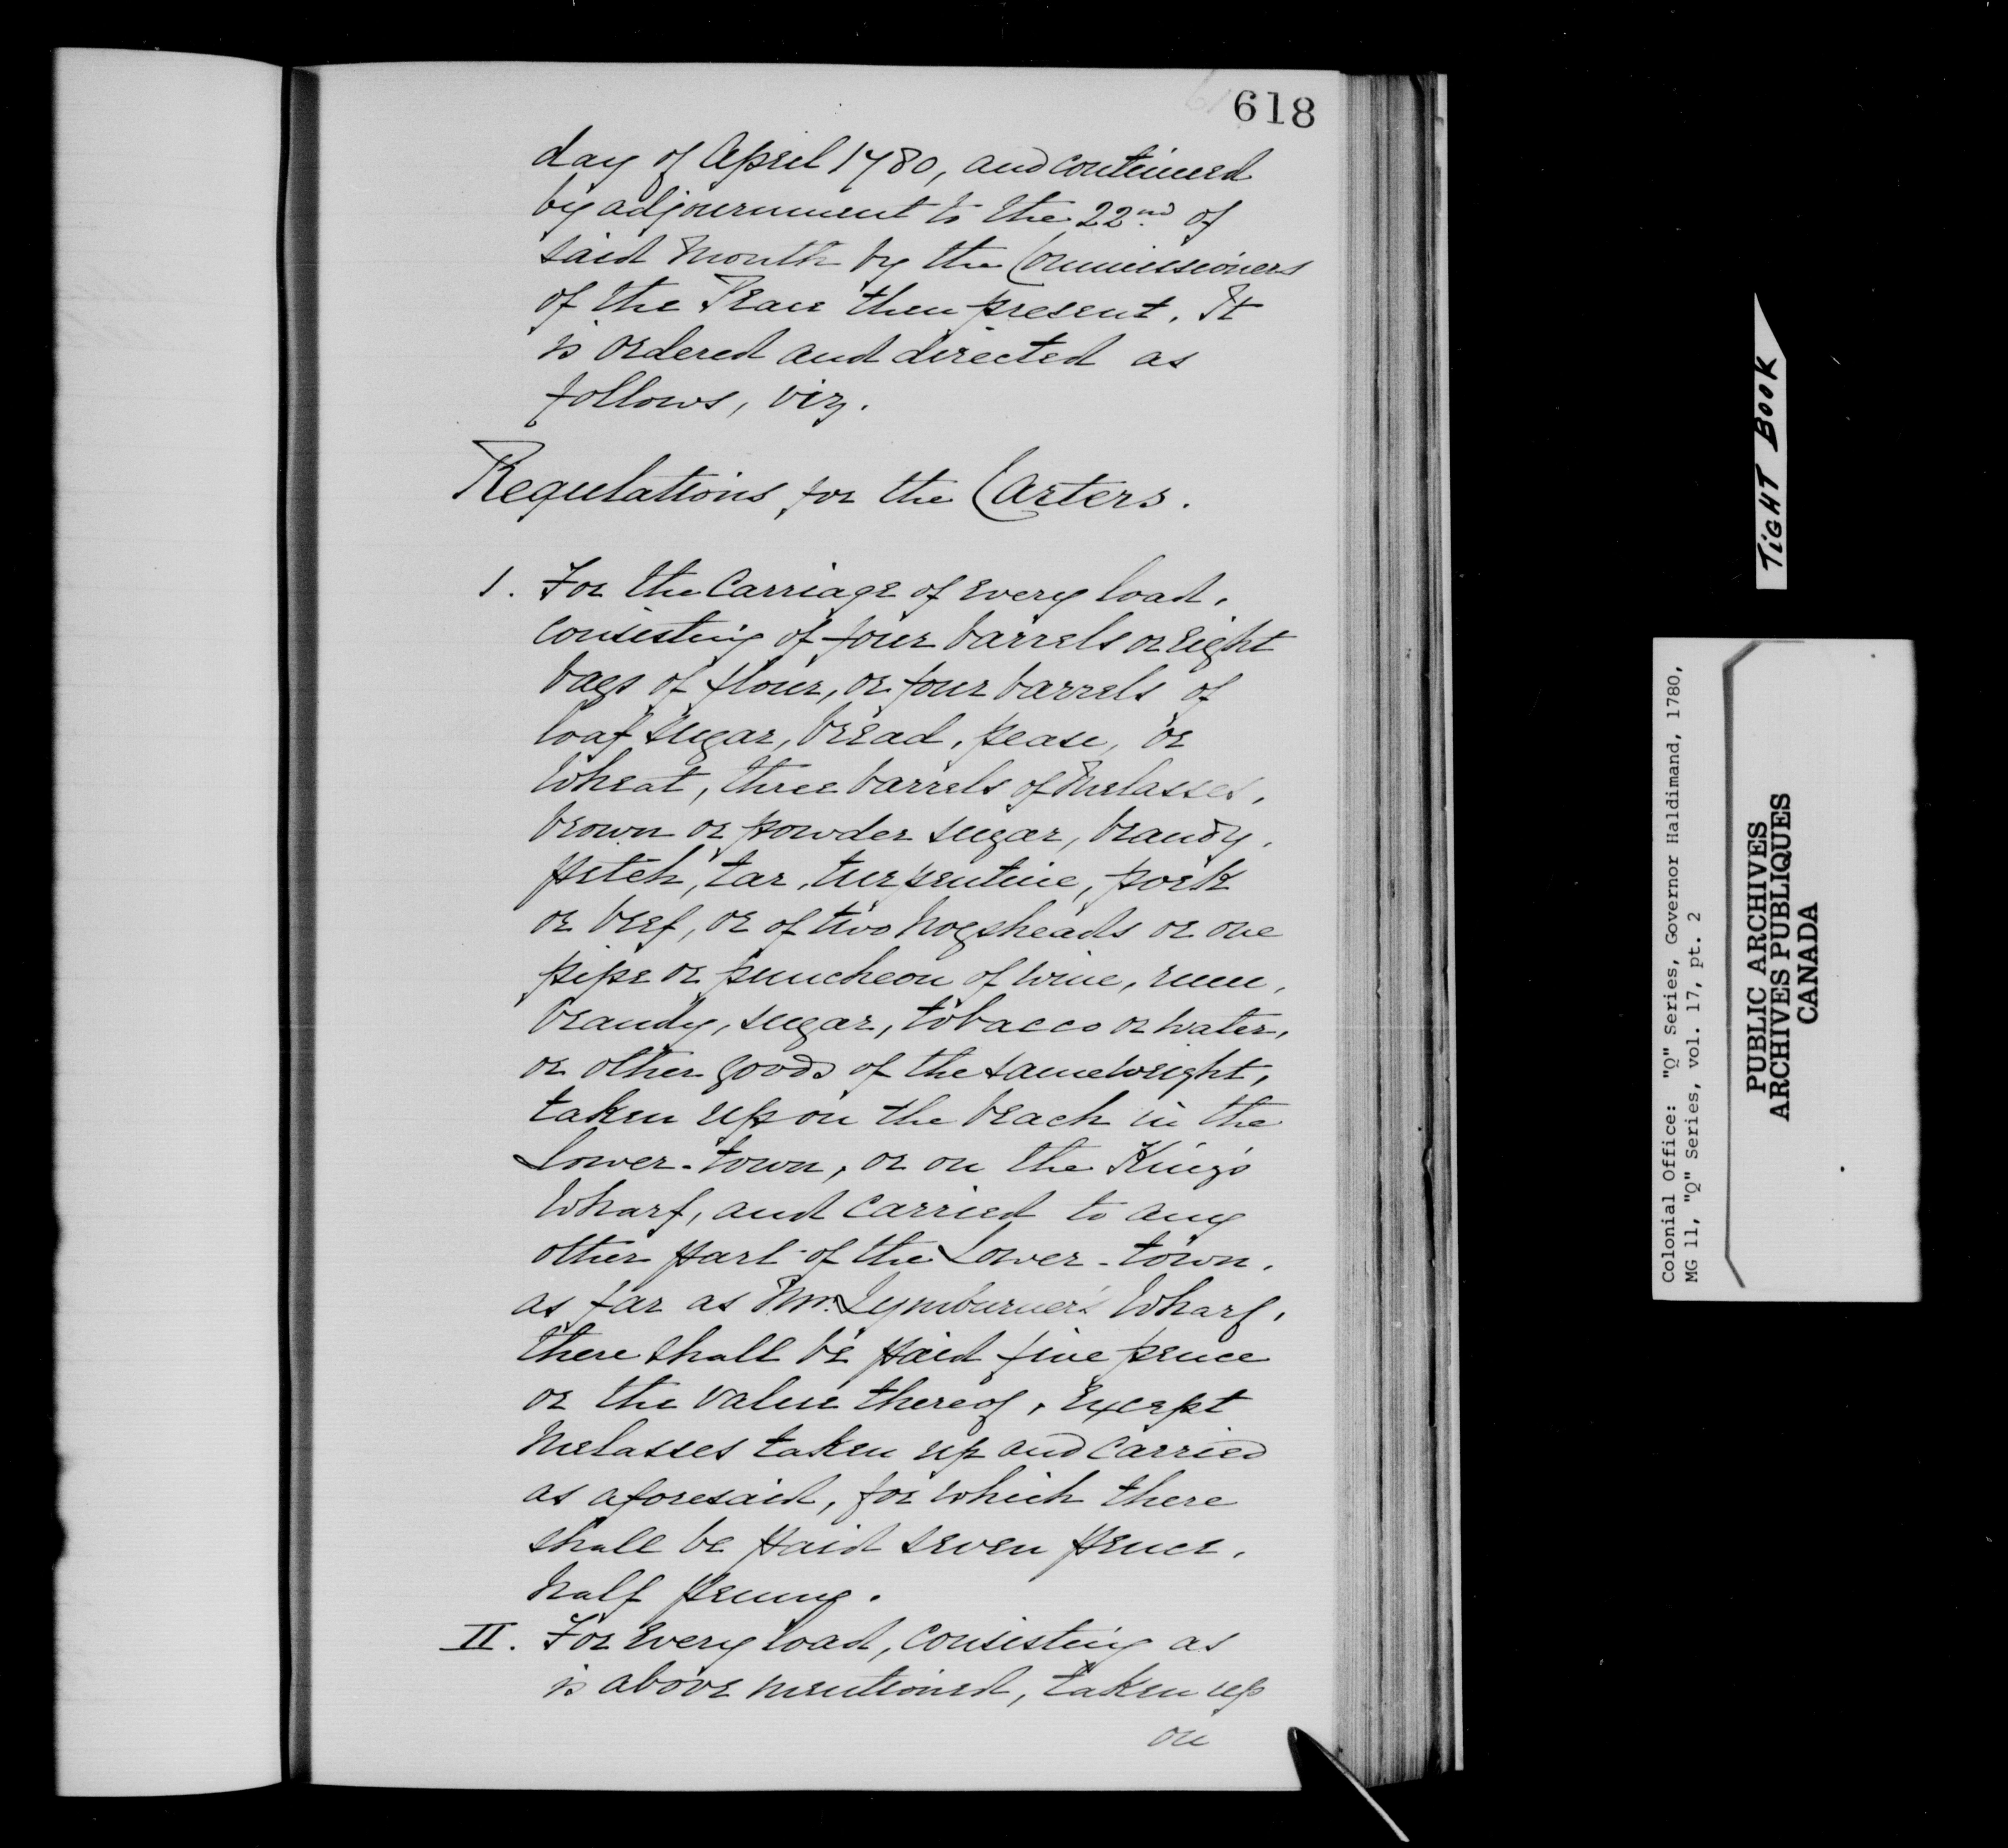 618
day of April 1780, and continued
by adjournment to the 22nd. of
said Month by the Commissioners
of the Peace then present. It
is ordered and directed as
follows, viz.
Regulations for the Carters.
1. For the Carriage of every load,
consisting of four barrels or eight
bags of flour, or four barrels of
loaf sugar, bread, pease, or
Wheat, three barrels of Melasses,
brown or powder sugar, brandy,
pitch, tar, turpentine, pork
or beef, or of two hogsheads or one
pipe or puncheon of wine, rum,
brandy, sugar, tobacco or water,
or other goods of the same weight,
taken up on the beach in the
Lower-town, or on the King's
Wharf, and carried to any
other part of the Lower-town,
as far as Mr. Lymburner's Wharf,
there shall be paid five pence
or the value thereof, except
Melasses taken up and carried
as aforesaid, for which there
shall be paid seven pence,
half penny.
II. For every load, consisting as
is above mentioned, taken up
on
TIGHT BOOK
Colonial Office: "Q" Series, Governor Haldimand, 1780,
MG 11, "Q" Series, vol. 17, pt. 2
PUBLIC ARCHIVES
ARCHIVES PUBLIQUES
CANADA